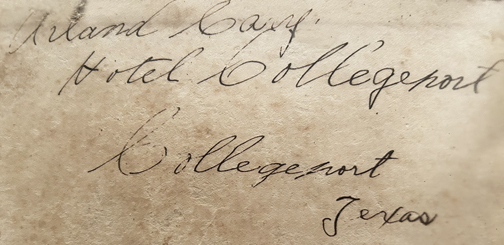 Arland Capp.
Hotel Collegeport
Collegeport
Texas